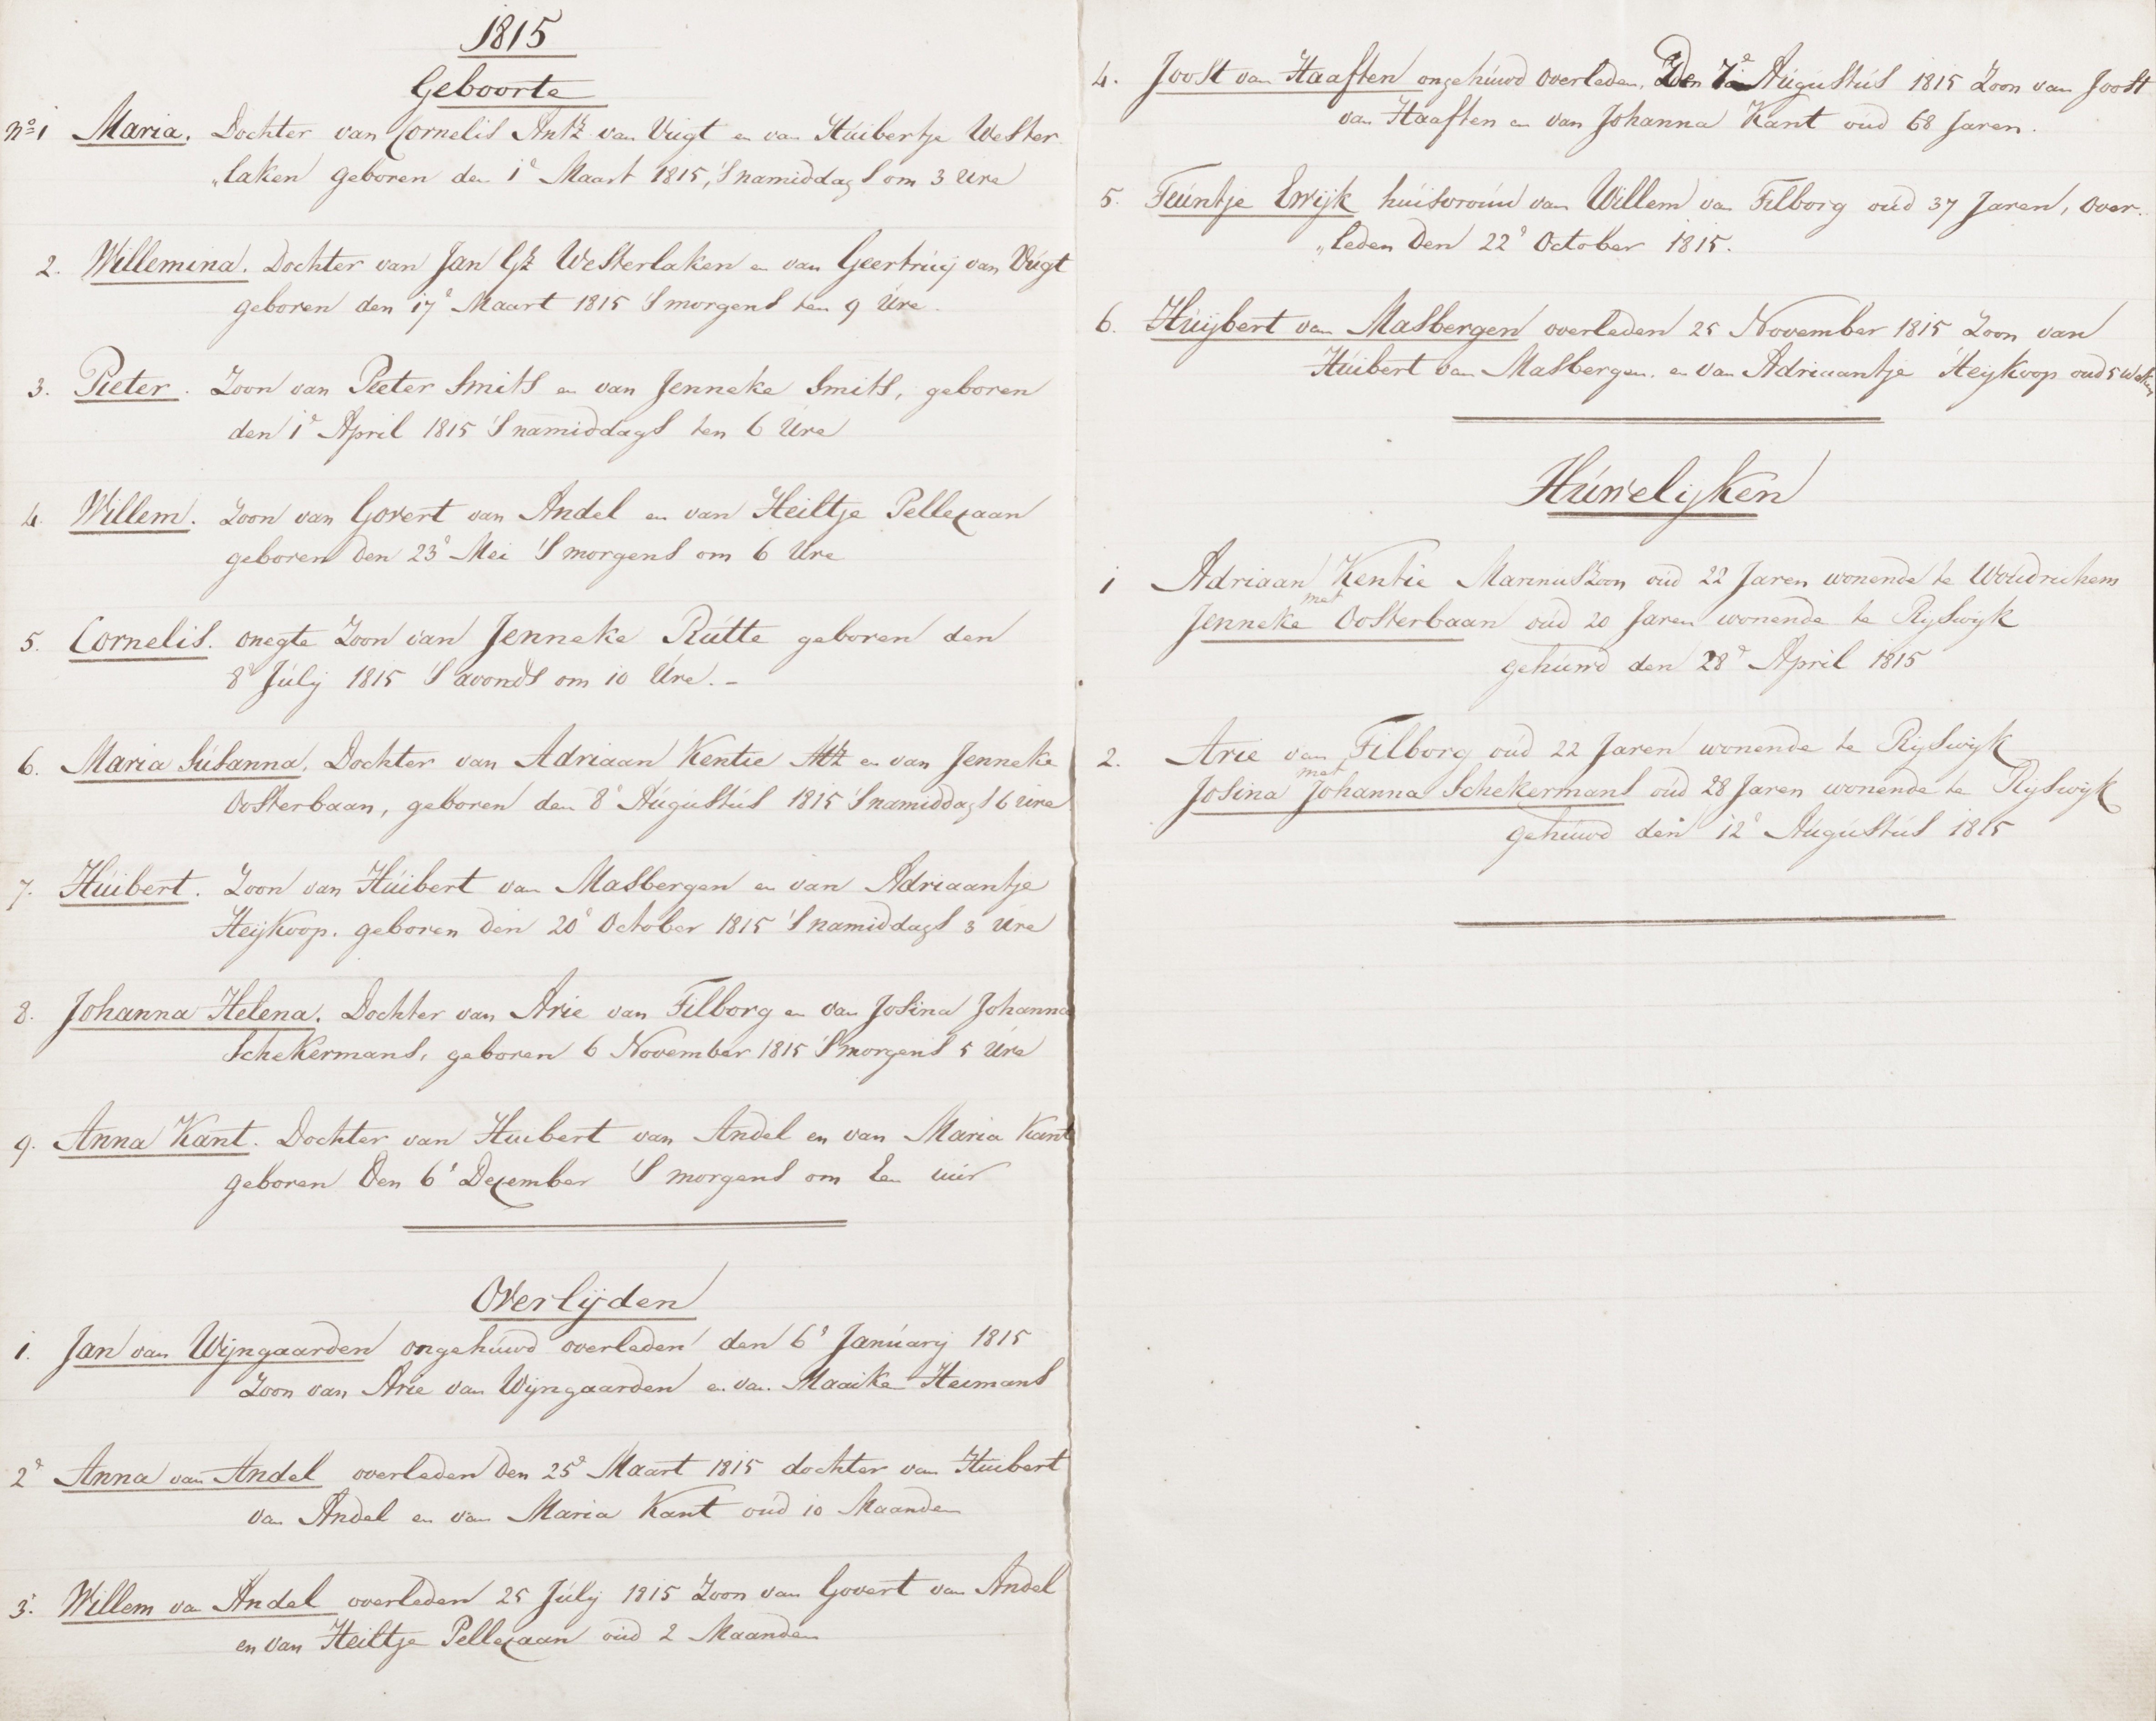 1815
Geboorte
No 1 Maria. Dochter van Cornelis Antz van Vugt en van Huibertje Wester
„laken geboren den 1e Maart 1815, 's namiddags om 3 Ure
2. Willemina. Dochter van Jan Gz Westerlaken en van Geertruij van Vugt
geboren den 17e Maart 1815 's morgens ten 9 Ure
3. Pieter. Zoon van Peeter Smits en van Jenneke Smits, geboren
den 1e April 1815 's namiddags ten 6 Ure
4. Willem. Zoon van Govert van Andel en van Heiltje Pellezaan
geboren den 23e Mei 's morgens om 6 Ure
5. Cornelis. onegte Zoon van Jenneke Rutte geboren den
8e Julij 1815 's avonds om 10 Ure. –
6. Maria Susanna, Dochter van Adriaan Kentie Mz en van Jenneke
Oosterbaan, geboren den 8e Augustus 1815 's namiddags 6 ure
7. Huibert. Zoon van Huibert van Masbergen en van Adriaantje
Heijkoop. geboren den 20e October 1815 's namiddags 3 Ure
8. Johanna Helena. Dochter van Arie van Tilborg en van Josina Johanna
Schekermans, geboren 6 November 1815 's morgens 5 Ure
9. Anna Kant. Dochter van Huibert van Andel en van Maria Kant
geboren den 6e Dezember 's morgens om Een uur
Overlijden
1. Jan van Wijngaarden ongehuwd overleden den 6e Januarij 1815
Zoon van Arie van Wijngaarden en van Maaike Heimans
2e Anna van Andel overleden den 25e Maart 1815 dochter van Huibert
van Andel en van Maria Kant oud 10 Maanden
3. Willem van Andel overleden 25 Julij 1815 Zoon van Govert van Andel
en van Heiltje Pellezaan oud 2 Maanden
4. Joost van Haaften ongehuwd overleden, Den 7e Augustus 1815 Zoon van Joost
van Haaften en van Johanna Kant oud 68 Jaren.
5. Teuntje Ewijk huisvrouw van Willem van Tilborg oud 37 Jaren, Over
„leden den 22e October 1815.
6. Huijbert van Masbergen overleden 25 November 1815 Zoon van
Huibert van Masbergen en van Adriaantje Heijkoop oud 5 Weken
Huwelijken
1 Adriaan Kentie Marinuszoon oud 22 Jaren wonende te Woudrichem
met
Jenneke Oosterbaan oud 20 Jaren wonende te Rijswijk
gehuwd den 28e April 1815
2. Arie van Tilborg oud 22 Jaren wonende te Rijswijk
met
Josina Johanna Schekermans oud 28 Jaren wonende te Rijswijk
gehuwd den 12e Augustus 1815